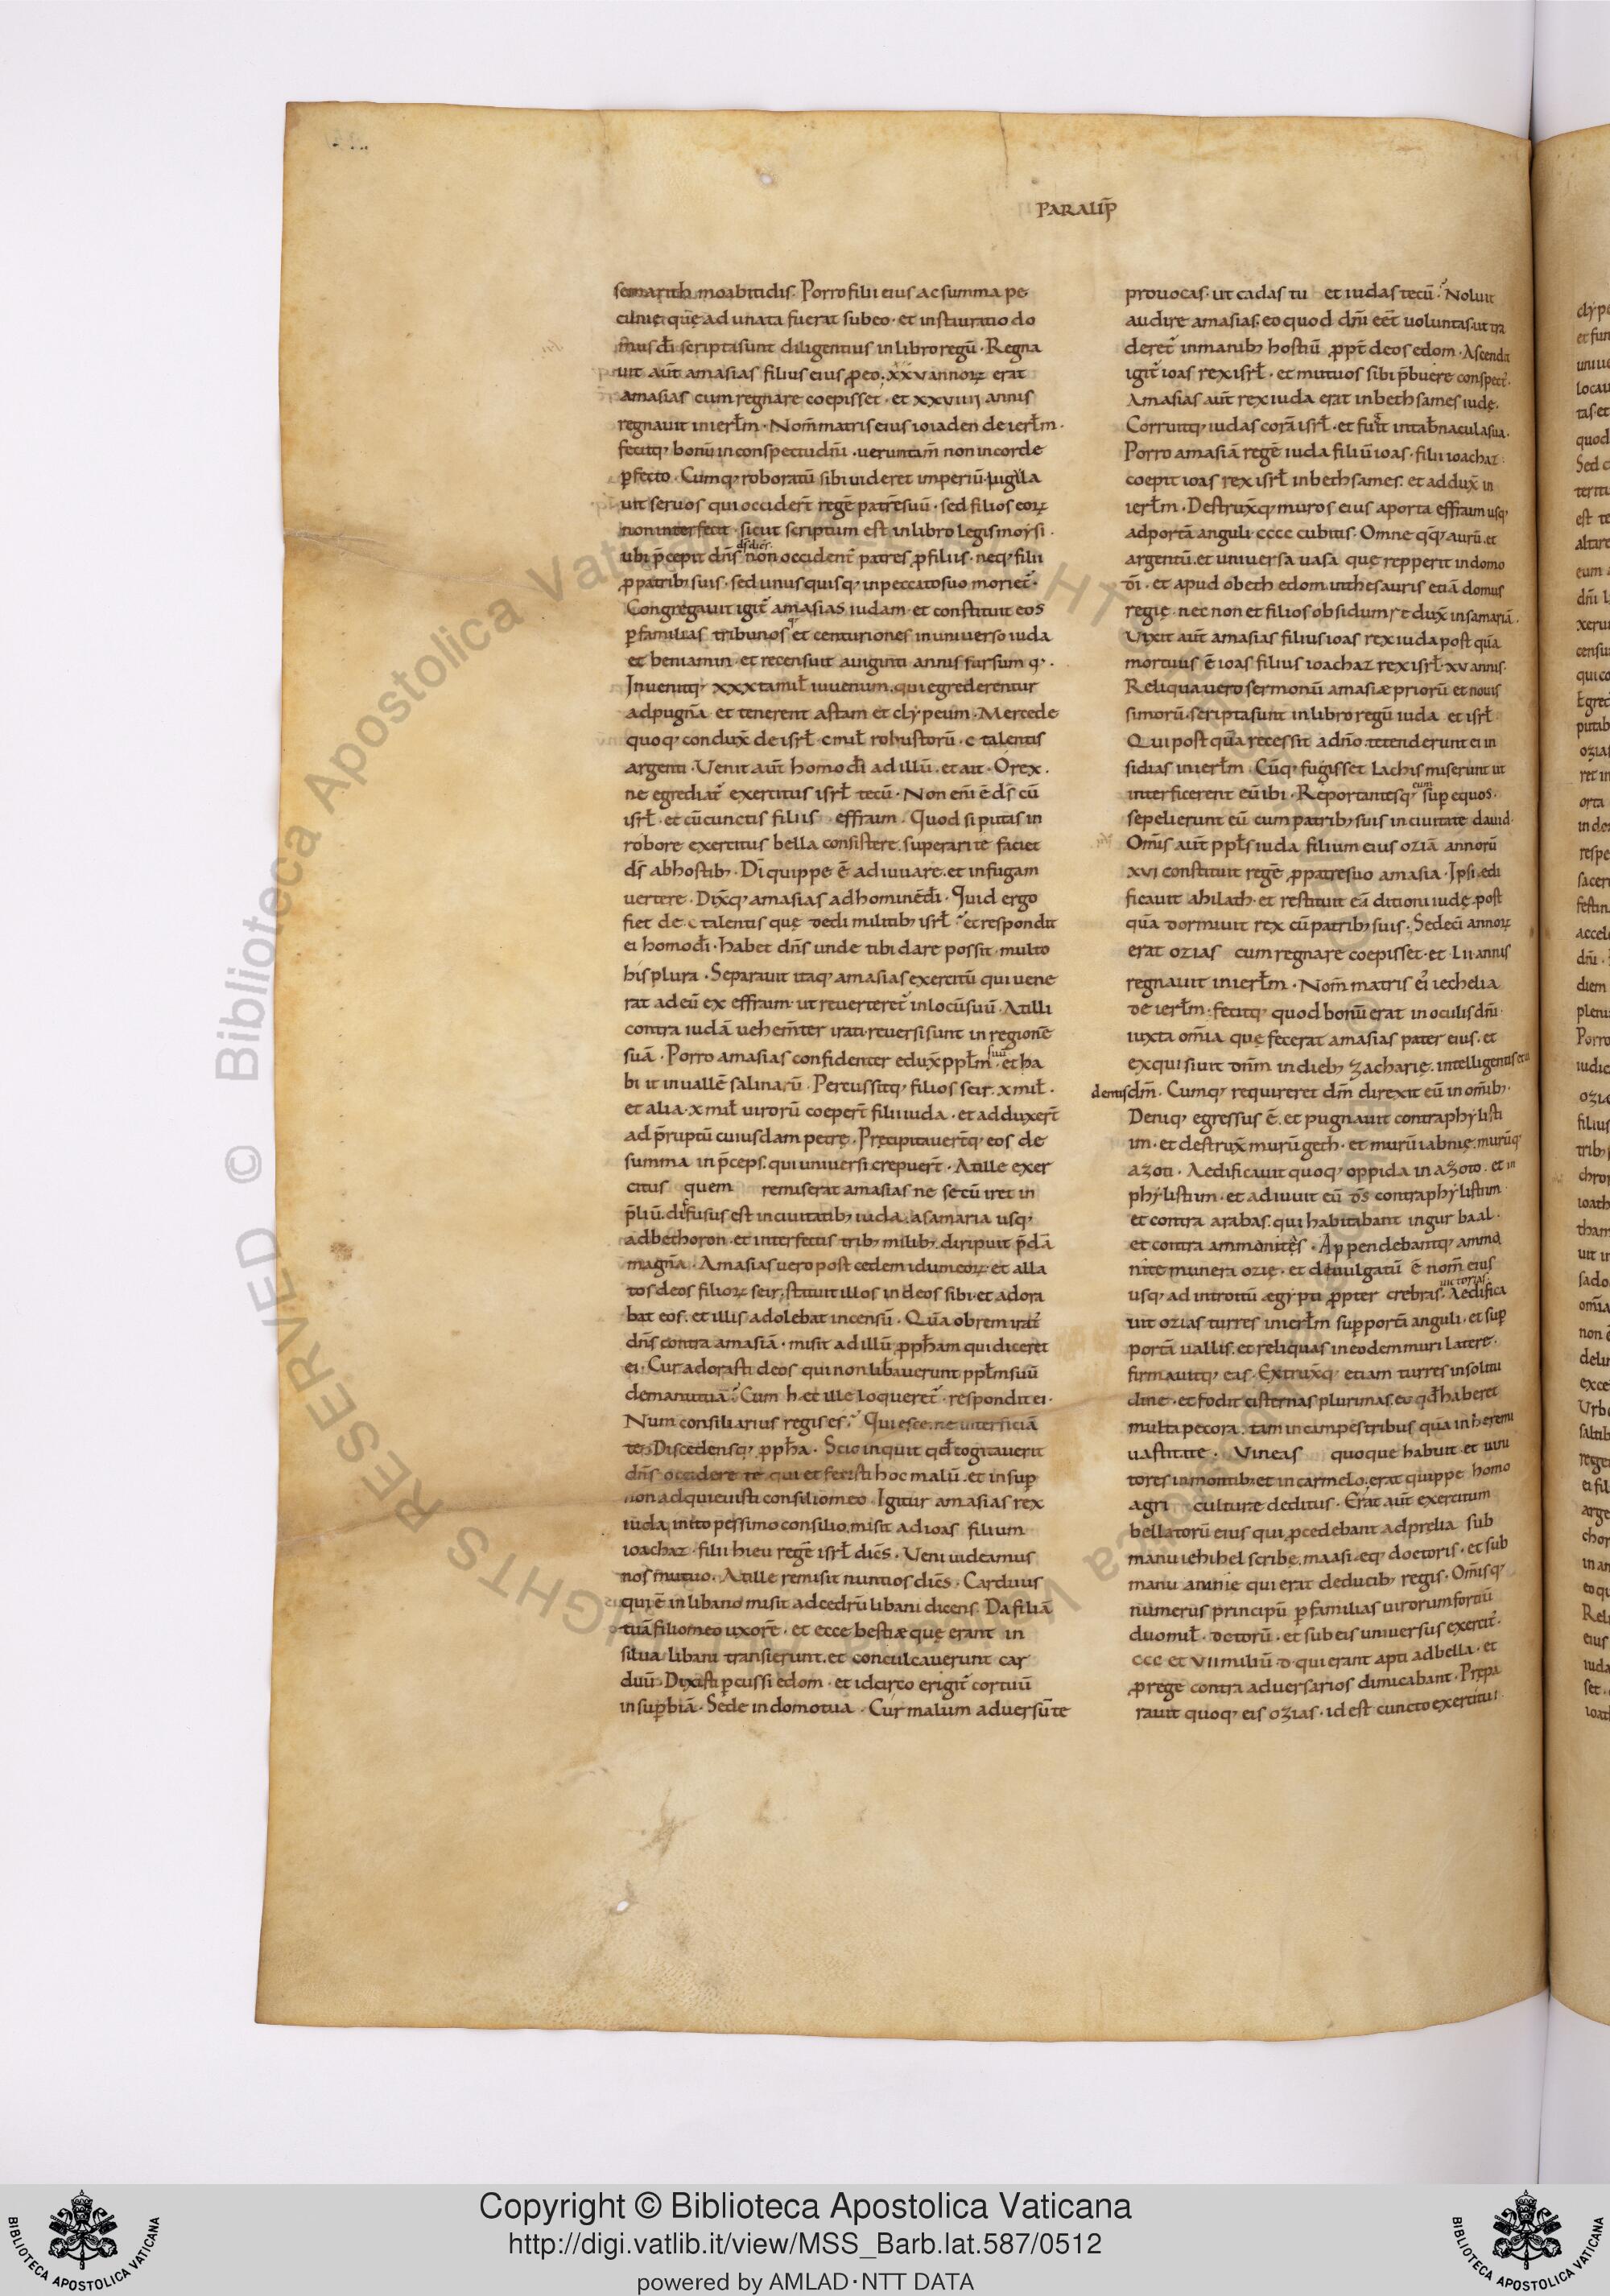 PARALIP̄
semarith moabitidis. Porro filii eius ac summa pe
cunię quę adunata fuerat sub eo. et instauratio do
mus dī scripta sunt diligentius in libro regū. Regna
uit aūt amasias filius eius ꝓ eo. xxv annoꝝ erat
amasias cum regnare coepisset. et xxviiii annis
regnauit in ierlm̄. Nom̄ matris eius ioiaden de ierlm̄.
fecitq; bonū in conspectu dn̄i. ueruntam̄ non in corde
ꝑfecto. Cumq; roboratū sibi uideret imperiū. iugula
uit seruos qui occider̄t regē patrē suū. sed filios eoꝝ
non interfecit. sicut scriptum est in libro legis moysi.
ubi p̄cepit dn̄s dicēs. non occident̄ patres ꝓ filiis. neq; filii
ꝓ patrib; suis. sed unusquisq; in peccato suo moriet̄.
Congregauit igit̄ amasias iudam. et constituit eos
ꝑ familias tribunos q; et centuriones in uniuerso iuda
et beniamin. et recensuit a uiginti annis sursum q;.
Inuenitq; xxx ta mil̄ iuuenum. qui egrederentur
ad pugnā et tenerent astam et clypeum. Mercede
quoq; condux̄ de isrl̄. c mil̄ robustorū. c talentis
argenti. Venit aūt homo dī ad illū. et ait. O rex.
ne egrediat̄ exercitus isrl̄ tecū. Non enī ē ds̄ cū
isrl̄. et cū cunctis filiis effraim. Quod si putas in
robore exercitus bella consistere. superari te faciet
ds̄ ab hostib;. Dī quippe ē adiuuare. et in fugam
uertere. Dix̄q; amasias ad hominē dī. Quid ergo
fiet de c talentis quę dedi militib; isrl̄? et respondit
ei homo dī. habet dn̄s unde tibi dare possit. multo
his plura. Separauit itaq; amasias exercitū qui uene
rat ad eū ex effraim. ut reuerteret̄ in locū suū. At illi
contra iudā uehem̄ter irati. reuersi sunt in regionē
suā. Porro amasias confidenter edux̄ ppl̄m suū. et ha
bi it in uallē salinarū. Percussitq; filios seir. x mil̄.
et alia. x mil̄ uirorū coeper̄t filii iuda. et adduxer̄t
ad p̄ruptū cuiusdam petrę. Precipitauer̄tq; eos de
summa in p̄ceps. qui uniuersi crepuer̄t. At ille exer
citus quem remiserat amasias ne secū iret in
p̄liū. difusus est in ciuitatib; iuda. a samaria usq;
ad bethoron. et interfectis trib; milib;. diripuit p̄dā
magnā. Amasias uero post cedem idumeoꝝ. et alla
tos deos filioꝝ seir. statuit illos in deos sibi. et adora
bat eos. et illis adolebat incensū. Quā obrem irat̄
dn̄s contra amasiā. misit ad illū ꝓph̄am qui diceret
ei. Cur adorasti deos qui non lib̄auerunt ppl̄m suū
de manu tuā? Cum h. et ille loqueret̄. respondit ei.
Num consiliarius regis es? Quiesce. ne interficiā
te. Discedensq; ꝓph̄a. Scio inquit qd̄ cogitauerit
dn̄s occidere te. qui et fecisti hoc malū. et insuꝑ
non adquieuisti consilio meo. Igitur amasias rex
iuda. inito pessimo consilio. misit ad ioas filium
ioachaz. filii hieu regē isrl̄ dicēs. Veni uideamus
nos mutuo. At ille remisit nuntios dicēs. Carduus
qui ē in libano misit ad cedrū libani dicens. Da filiā
tuā filio meo uxorē. et ecce bestiæ quę erant in
silua libani transierunt. et conculcauerunt car
duū. Dixisti ꝑcussi edom. et idcirco erigit̄ cor tuū
in suꝑbiā. Sede in domo tua. Cur malum aduersū te
prouocas. ut cadas tu et iudas tecū? Noluit
audire amasias. eo quod dn̄i eēt uoluntas. ut tra
deret̄ in manib; hostiū ꝓpt̄ deos edom. Ascendit
igit̄ ioas rex isrl̄. et mutuos sibi p̄buere conspect̄.
Amasias aūt rex iuda erat in bethsames iudę.
Corruitq; iudas corā isrl̄. et fugit in tab̄nacula sua.
Porro amasiā regē iuda filiū ioas. filii ioachaz.
coepit ioas rex isrl̄ in bethsames. et addux̄ in
ierlm̄. Destrux̄q; muros eius a porta effraim usq;
ad portā anguli. cccc cubitis. Omne q̄q; aurū. et
argentū. et uniuersa uasa quę repperit in domo
dī. et apud obeth edom. in thesauris etiā domus
regię. nec non et filios obsidum redux̄ in samariā.
Vixit aūt amasias filius ioas rex iuda post quā
mortuus ē ioas filius ioachaz rex isrl̄. xv annis.
Reliqua uero sermonū amasiæ priorū et nouis
simorū. scripta sunt in libro regū iuda et isrl̄.
Qui post quā recessit a dn̄o. tetenderunt ei in
sidias in ierlm̄. Cūq; fugisset lachis miserunt ut
interficerent eū ibi. Reportantesq; eum suꝑ equos.
sepelierunt eū cum patrib; suis in ciuitate dauid.
Omīs aūt ppl̄s iuda filium eius oziā annorū
xvi constituit regē ꝓ patre suo amasia. Ipsi edi
ficauit ahilath. et restituit eā ditioni iudę. post
quā dormiuit rex cū patrib; suis. Sedecī annoꝝ
erat ozias cum regnare coepisset. et lii annis
regnauit in ierlm̄. Nom̄ matris ei; iechelia
de ierlm̄. fecitq; quod bonū erat in oculis dn̄i.
iuxta om̄ia quę fecerat amasias pater eius. et
exquisiuit dn̄m in dieb; zacharię. intelligentis et ui
dentis dm̄. Cumq; requireret dm̄ direxit eū in om̄ib;.
Deniq; egressus ē. et pugnauit contra phylisti
im. et destrux̄ murū geth. et murū iabnię. murūq;
azoti. Aedificauit quoq; oppida in azoto. et in
phylistiim. et adiuuit eū ds̄ contra phylistiim.
et contra arabas. qui habitabant in gur baal.
et contra ammonites. Appendebantq; ammo
nite munera ozię. et deuulgatū ē nom̄ eius
usq; ad introitū ægypti ꝓpter crebras uictorias. Aedifica
uit ozias turres in ierlm̄ suꝑ portā anguli. et suꝑ
portā uallis. et reliquas in eodem muri latere.
firmauitq; eas. Extrux̄q; etiam turres in solitu
dine. et fodit cisternas plurimas. eo qd̄ haberet
multa pecora. tam in campestribus quā in heremi
uastitate. Vineas quoque habuit. et uini
tores in montib; et in carmelo. erat quippe homo
agri culturæ deditus. Erat aūt exercitum
bellatorū eius qui ꝓcedebant ad prelia sub
manu iehihel scribę. maasięq; doctoris. et sub
manu ananie qui erat de ducib; regis. Omīsq;
numerus principū ꝑ familias uirorum fortiū
duo mil̄. dctorū. et sub eis uniuersus exercit̄.
ccc et vii miliū. d. qui erant apti ad bella. et
ꝓ rege contra aduersarios dimicabant. Prępa
rauit quoq; eis ozias. id est cuncto exercitui.
Copyright © Biblioteca Apostolica Vaticana
http://digi.vatlib.it/view/MSS_Barb.lat.587/0512
powered by AMLAD·NTT DATA